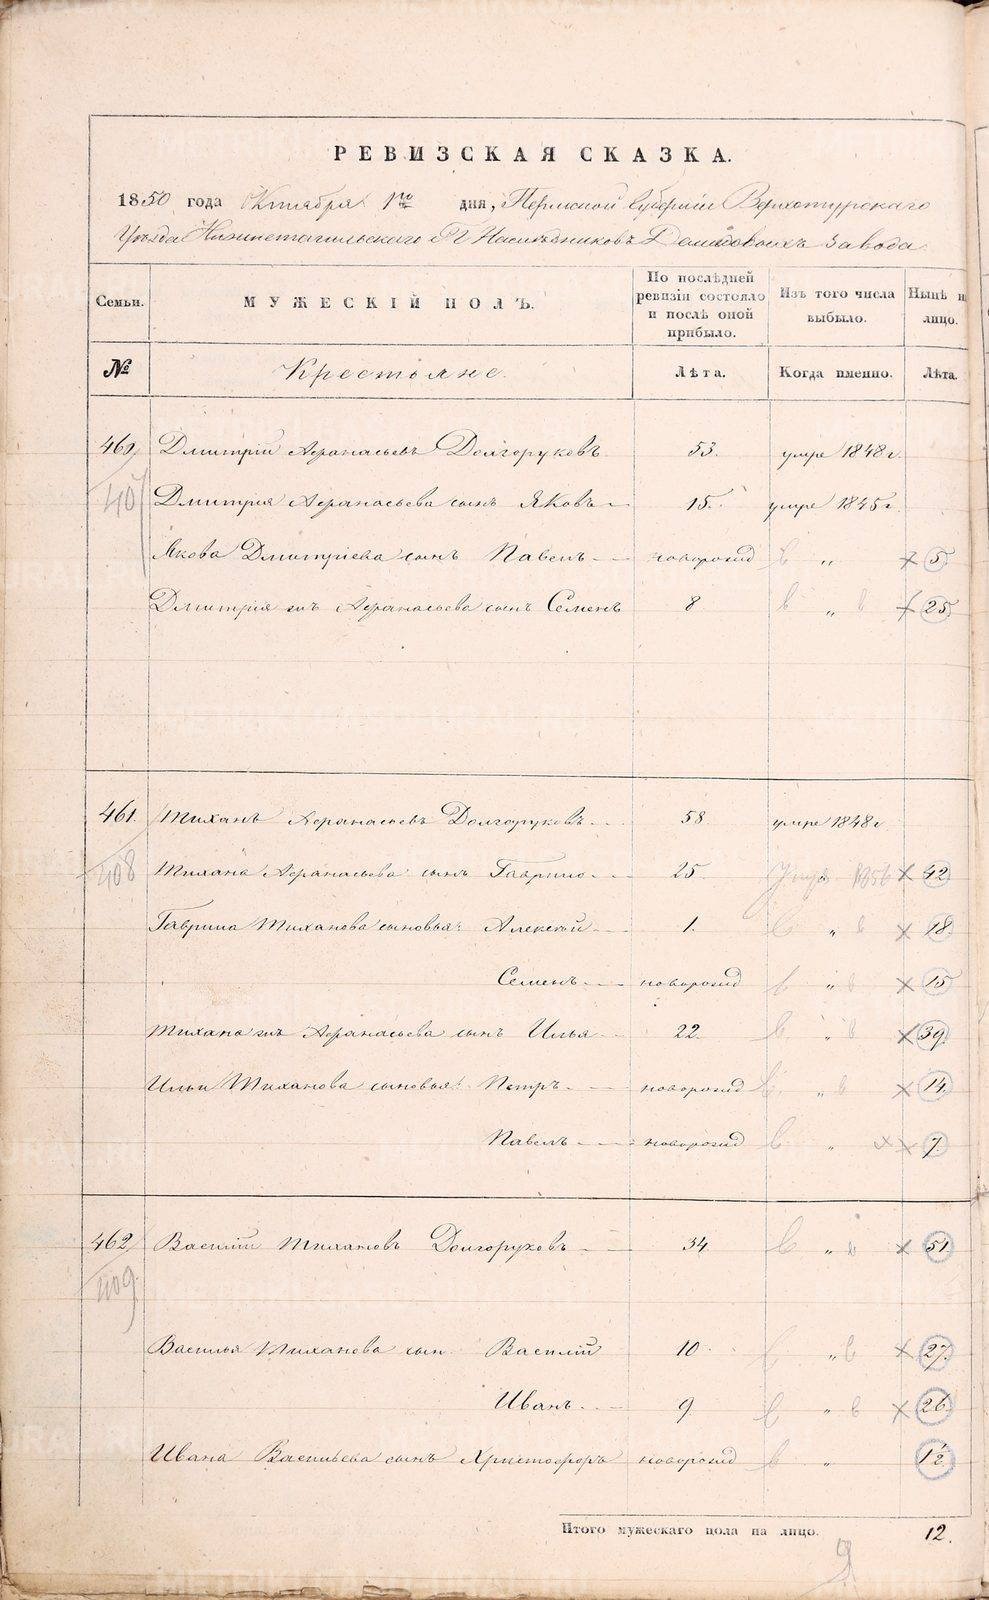 РЕВИЗСКАЯ СКАЗКА.
1850 года Октября 1го дня, Пермской Губернiи Верхотурскаго
Уѣзда Нижнетагильскаго ГГ Наслѣдниковъ Демидовыхъ завода.
Семьи. МУЖЕСКIЙ ПОЛЪ. По послѣдней ревизiи состояло и послѣ оной прибыло. Изъ того числа выбыло. Нынѣ на лицо.
№ Крестьяне. Лѣта. Когда именно. Лѣта.
460 Дмитрiй Афанасьевъ Долгоруковъ 53. умре 1848 г.
Дмитрия Афанасьева сынъ Яковъ 15. умре 1845 г.
Якова Дмитрiева сынъ Павелъ новорожд „ 5
Дмитрия жъ Афанасьева сынъ Семенъ 8 „ 25.
461. Тиханъ Афанасьевъ Долгоруковъ 58. умре 1848 г
408
Тихана Афанасьева сынъ Гаврило 25. 1856 42
Гаврила Тиханова сыновья: Алексѣй 1. „ 18.
Семенъ новорожд „ 15
Тихана жъ Афанасьева сынъ Илья 22. „ 39.
Ильи Тиханова сыновья: Петръ новорожд „ 14.
Павелъ новорожд „ 7.
462 Василiй Тихановъ Долгоруковъ 34 „ 51.
409.
Василья Тиханова сын Василiй 10. „ 27.
Иванъ 9 „ 26.
Ивана Васильева сынъ Христофоръ новорожд „ 1/2
Итого мужескаго пола на лицо. 12.
9